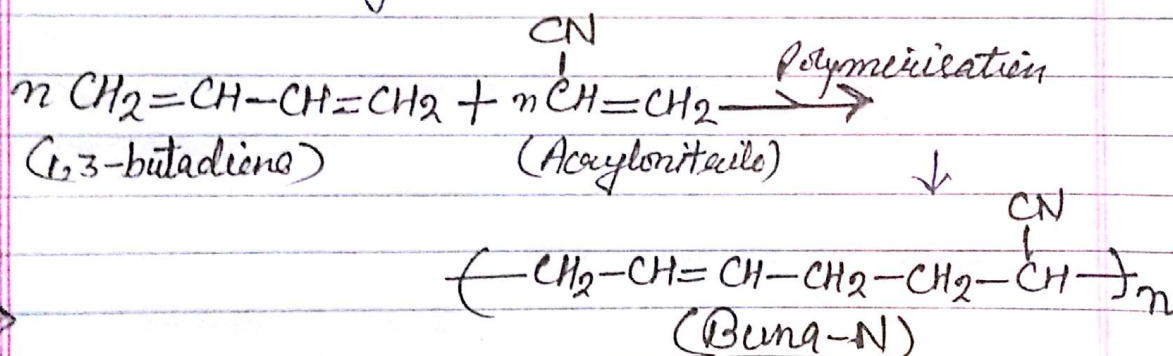 CN
n CH₂=CH–CH=CH₂ + n CH=CH₂ ⟶ Polymerisation
(1,3-butadiene) (Acrylonitrile)
↓
CN
–( CH₂–CH=CH–CH₂–CH₂–CH )–n
(Buna-N)